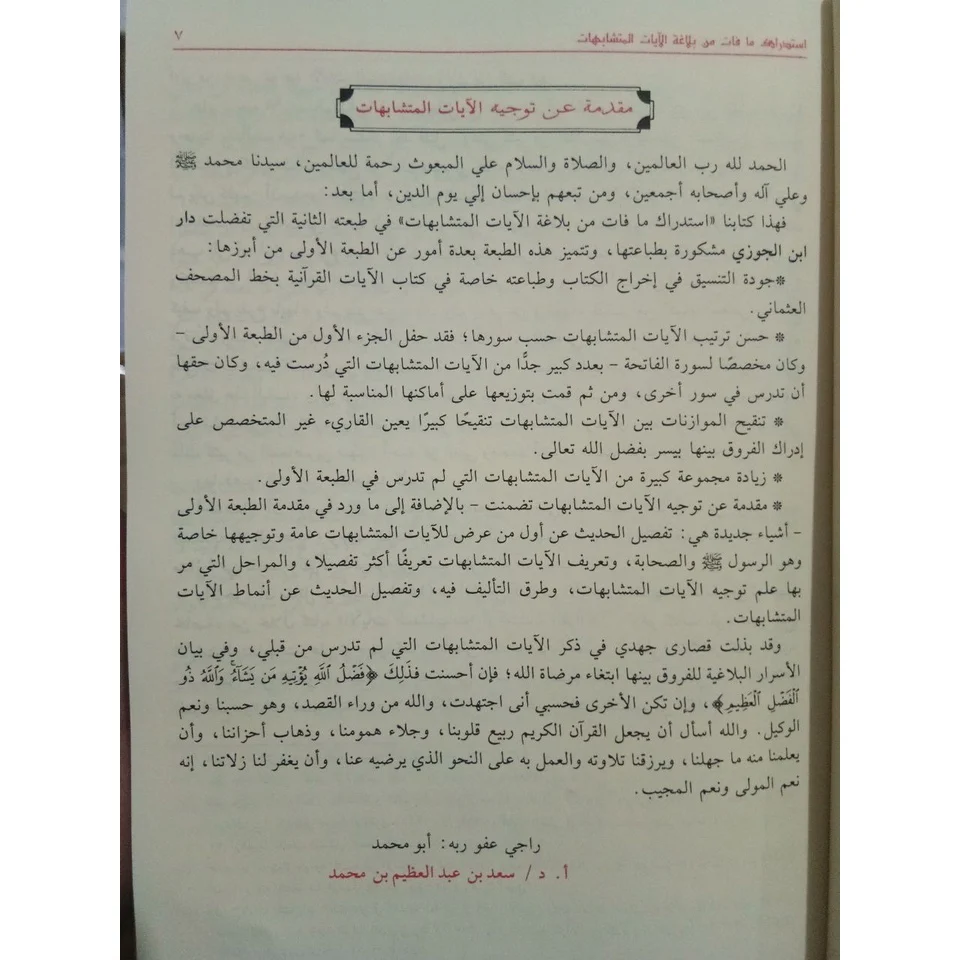 استدراك ما فات من بلاغة الآيات المتشابهات ٧
مقدمة عن توجيه الآيات المتشابهات
الحمد لله رب العالمين، والصلاة والسلام علي المبعوث رحمة للعالمين، سيدنا محمد ﷺ
وعلي آله وأصحابه أجمعين، ومن تبعهم بإحسان إلي يوم الدين، أما بعد:
فهذا كتابنا «استدراك ما فات من بلاغة الآيات المتشابهات» في طبعته الثانية التي تفضلت دار
ابن الجوزي مشكورة بطباعتها، وتتميز هذه الطبعة بعدة أمور عن الطبعة الأولى من أبرزها:
*جودة التنسيق في إخراج الكتاب وطباعته خاصة في كتاب الآيات القرآنية بخط المصحف
العثماني.
* حسن ترتيب الآيات المتشابهات حسب سورها؛ فقد حفل الجزء الأول من الطبعة الأولى –
وكان مخصصًا لسورة الفاتحة – بعدد كبير جدًّا من الآيات المتشابهات التي دُرست فيه، وكان حقها
أن تدرس في سور أخرى، ومن ثم قمت بتوزيعها على أماكنها المناسبة لها.
* تنقيح الموازنات بين الآيات المتشابهات تنقيحًا كبيرًا يعين القاريء غير المتخصص على
إدراك الفروق بينها بيسر بفضل الله تعالى.
* زيادة مجموعة كبيرة من الآيات المتشابهات التي لم تدرس في الطبعة الأولى.
* مقدمة عن توجيه الآيات المتشابهات تضمنت – بالإضافة إلى ما ورد في مقدمة الطبعة الأولى
– أشياء جديدة هي: تفصيل الحديث عن أول من عرض للآيات المتشابهات عامة وتوجيهها خاصة
وهو الرسول ﷺ والصحابة، وتعريف الآيات المتشابهات تعريفًا أكثر تفصيلا، والمراحل التي مر
بها علم توجيه الآيات المتشابهات، وطرق التأليف فيه، وتفصيل الحديث عن أنماط الآيات
المتشابهات.
وقد بذلت قصارى جهدي في ذكر الآيات المتشابهات التي لم تدرس من قبلي، وفي بيان
الأسرار البلاغية للفروق بينها ابتغاء مرضاة الله؛ فإن أحسنت فذَلِكَ ﴿فَضْلُ ٱللَّهِ يُؤْتِيهِ مَن يَشَآءُۚ وَٱللَّهُ ذُو
ٱلْفَضْلِ ٱلْعَظِيمِ﴾، وإن تكن الأخرى فحسبي أنى اجتهدت، والله من وراء القصد، وهو حسبنا ونعم
الوكيل. والله أسأل أن يجعل القرآن الكريم ربيع قلوبنا، وجلاء همومنا، وذهاب أحزاننا، وأن
يعلمنا منه ما جهلنا، ويرزقنا تلاوته والعمل به على النحو الذي يرضيه عنا، وأن يغفر لنا زلاتنا، إنه
نعم المولى ونعم المجيب.
راجي عفو ربه: أبو محمد
أ. د/ سعد بن عبد العظيم بن محمد